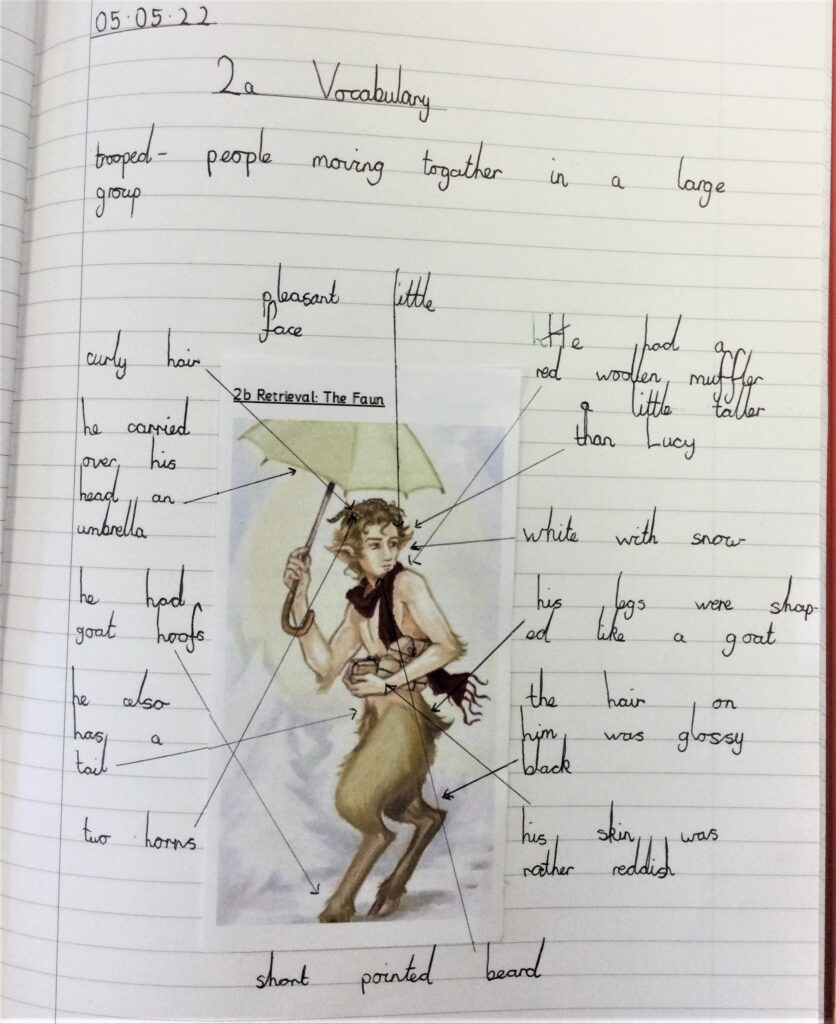 05.05.22
2a Vocabulary
trooped- people moving togather in a large
group
pleasant little
face
curly hair
he carried
over his
head an
unbrella
he had
goat hoofs
he also
has a
tail
two horns
2b Retrieval: The Faun
hHe had a
red woollen muffler
a little taller
than Lucy
white with snow
his legs were shap-
ed like a goat
the hair on
him was glossy
black
his skin was
rather reddish
short pointed beard